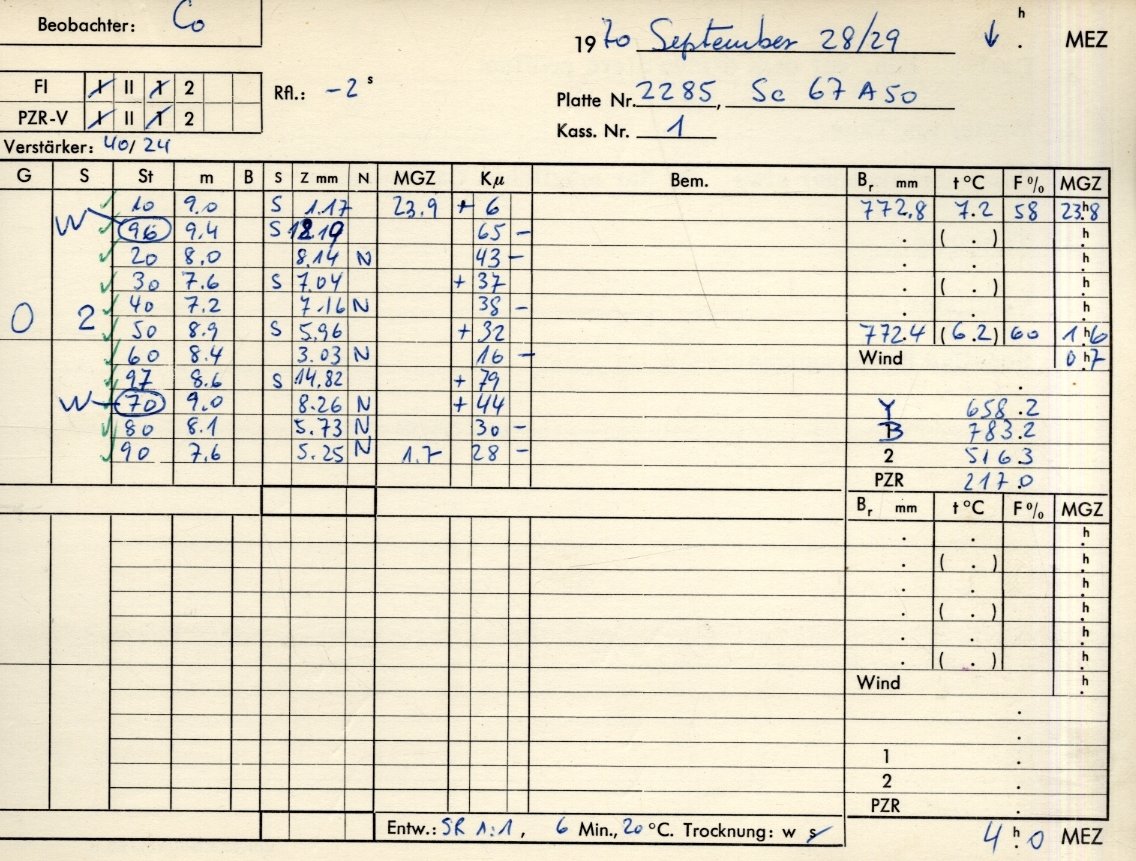 Beobachter: Co
1970 September 28/29 ↓ h . MEZ
FI I II 1 2
PZR-V I II 1 2
Rfl.: -2 s
Platte Nr. 2285, Sc 67 A 50
Kass. Nr. 1
Verstärker: 40/24
G S St m B S Z mm N MGZ Kμ Bem. Br mm t °C F % MGZ
10 9.0 S 1.17 23.9 + 6 772.8 7.2 58 23h8
W 96 9.4 S 65 - . ( . ) h
20 8.0 8.14 N 43 - . . h
30 7.6 S 7.04 + 37 . ( . ) h
40 7.2 7.16 N 38 - . . h
0 2 50 8.9 S 5.96 + 32 772.4 (6.2) 60 1h6
60 8.4 3.03 N 16 - Wind 0h7
97 8.6 S 14.82 + 79 .
W 70 9.0 8.26 N + 44 Y 658.2
80 8.1 5.73 N 30 - B 783.2
90 7.6 5.25 N 1.7 28 - 2 516.3
PZR 217.0
Br mm t °C F % MGZ
. . h
. ( . ) h
. . h
. ( . ) h
. . h
. ( . ) h
Wind h
.
.
1 .
2 .
PZR .
Entw.: SR 1:1, 6 Min., 20 °C. Trocknung: w s
4 h 0 MEZ